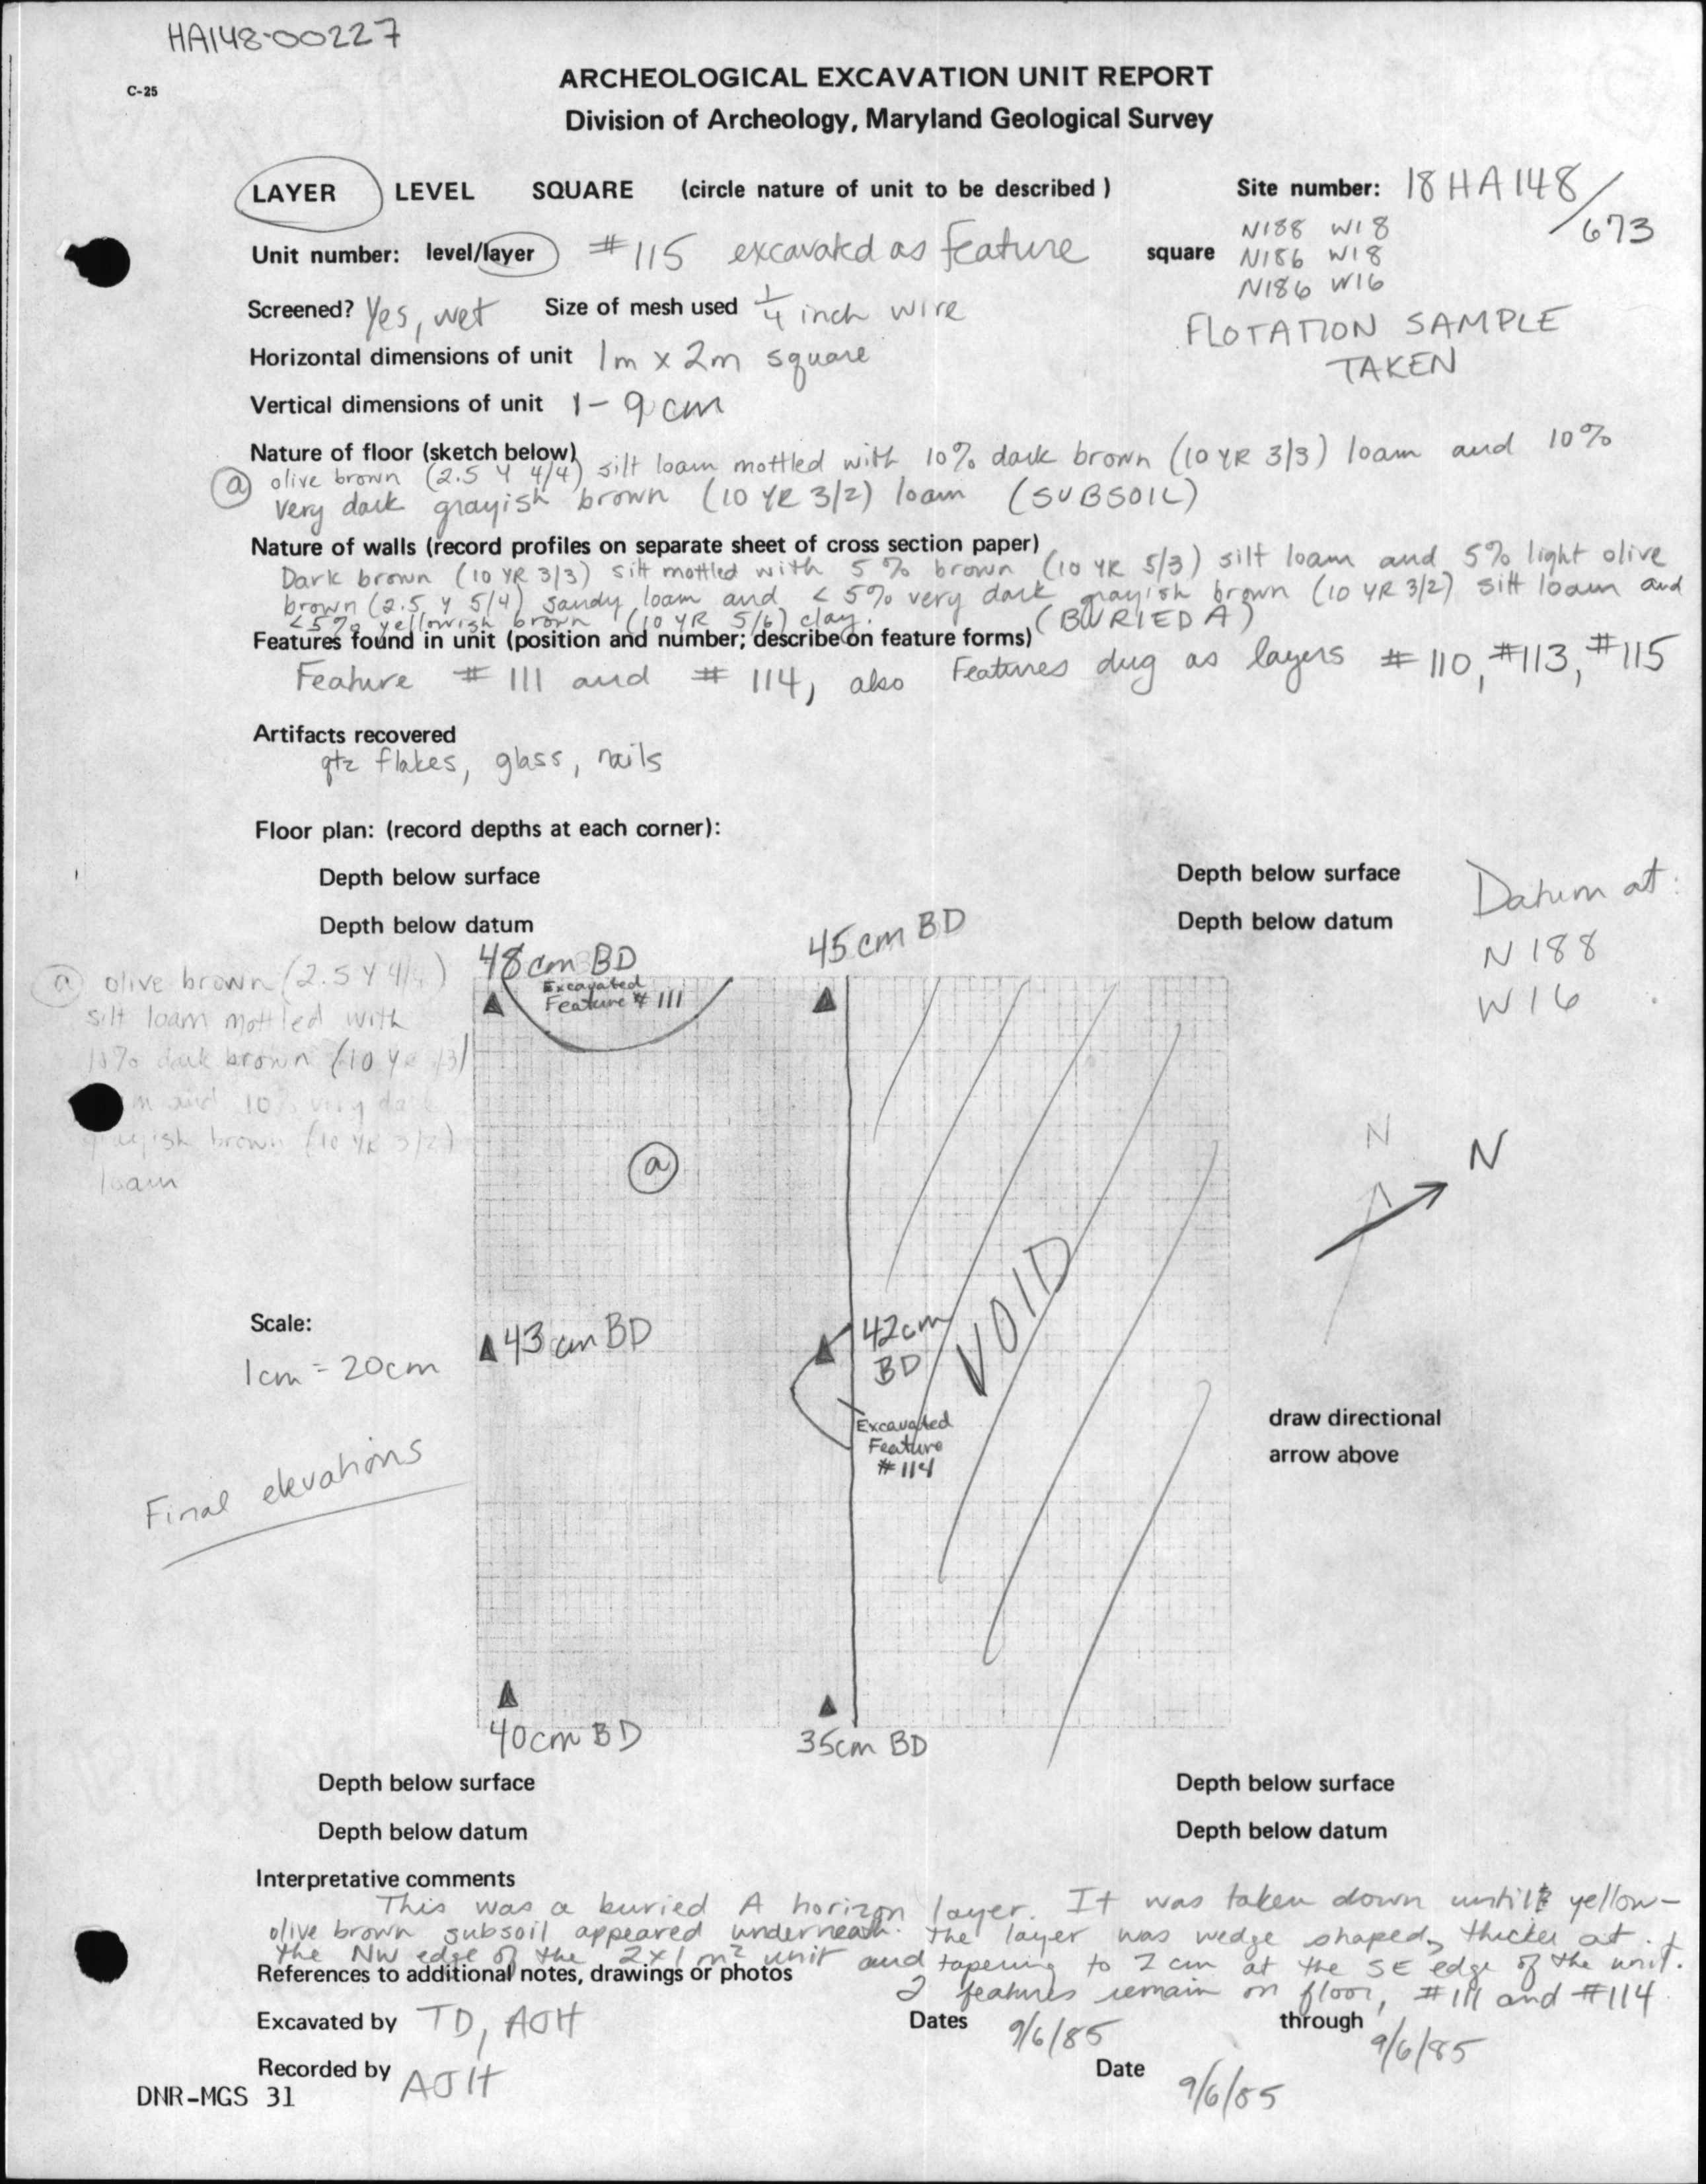 HA148-00227
C-25
ARCHEOLOGICAL EXCAVATION UNIT REPORT
Division of Archeology, Maryland Geological Survey
LAYER LEVEL SQUARE (circle nature of unit to be described ) Site number: 18HA148/673
Unit number: level/layer #115 excavated as Feature square N188 W18
N186 W18
N186 W16
Screened? Yes, wet Size of mesh used 1/4 inch wire
FLOTATION SAMPLE
TAKEN
Horizontal dimensions of unit 1m x 2m square
Vertical dimensions of unit 1-9 cm
Nature of floor (sketch below)
(a) olive brown (2.5 Y 4/4) silt loam mottled with 10% dark brown (10 YR 3/3) loam and 10%
very dark grayish brown (10 YR 3/2) loam (SUBSOIL)
Nature of walls (record profiles on separate sheet of cross section paper)
Dark brown (10 YR 3/3) silt mottled with 5% brown (10 YR 5/3) silt loam and 5% light olive
brown (2.5 Y 5/4) sandy loam and < 5% very dark grayish brown (10 YR 3/2) silt loam and
<5% yellowish brown (10 YR 5/6) clay. (BURIED A)
Features found in unit (position and number; describe on feature forms)
Feature #111 and #114, also Features dug as layers #110, #113, #115
Artifacts recovered
qtz flakes, glass, nails
Floor plan: (record depths at each corner):
Depth below surface Depth below surface
Depth below datum Depth below datum
Datum at:
N 188
W 16
48cm BD 45cm BD
Excavated
Feature #111
(a) olive brown (2.5 Y 4/4)
silt loam mottled with
10% dark brown (10 YR 3/3)
and 10% very dark
grayish brown (10 YR 3/2)
loam
(a)
N N
VOID
Scale:
1cm = 20cm
43 cm BD 42cm
BD
Excavated
Feature
#114
draw directional
arrow above
Final elevations
40cm BD 35cm BD
Depth below surface Depth below surface
Depth below datum Depth below datum
Interpretative comments
This was a buried A horizon layer. It was taken down until yellow-
olive brown subsoil appeared underneath. The layer was wedge shaped, thicker at
the NW edge of the 2x1 m² unit and tapering to 2 cm at the SE edge of the unit.
References to additional notes, drawings or photos
2 features remain on floor, #111 and #114.
Excavated by TD, AJH Dates 9/6/85 through 9/6/85
Recorded by AJH Date 9/6/85
DNR-MGS 31